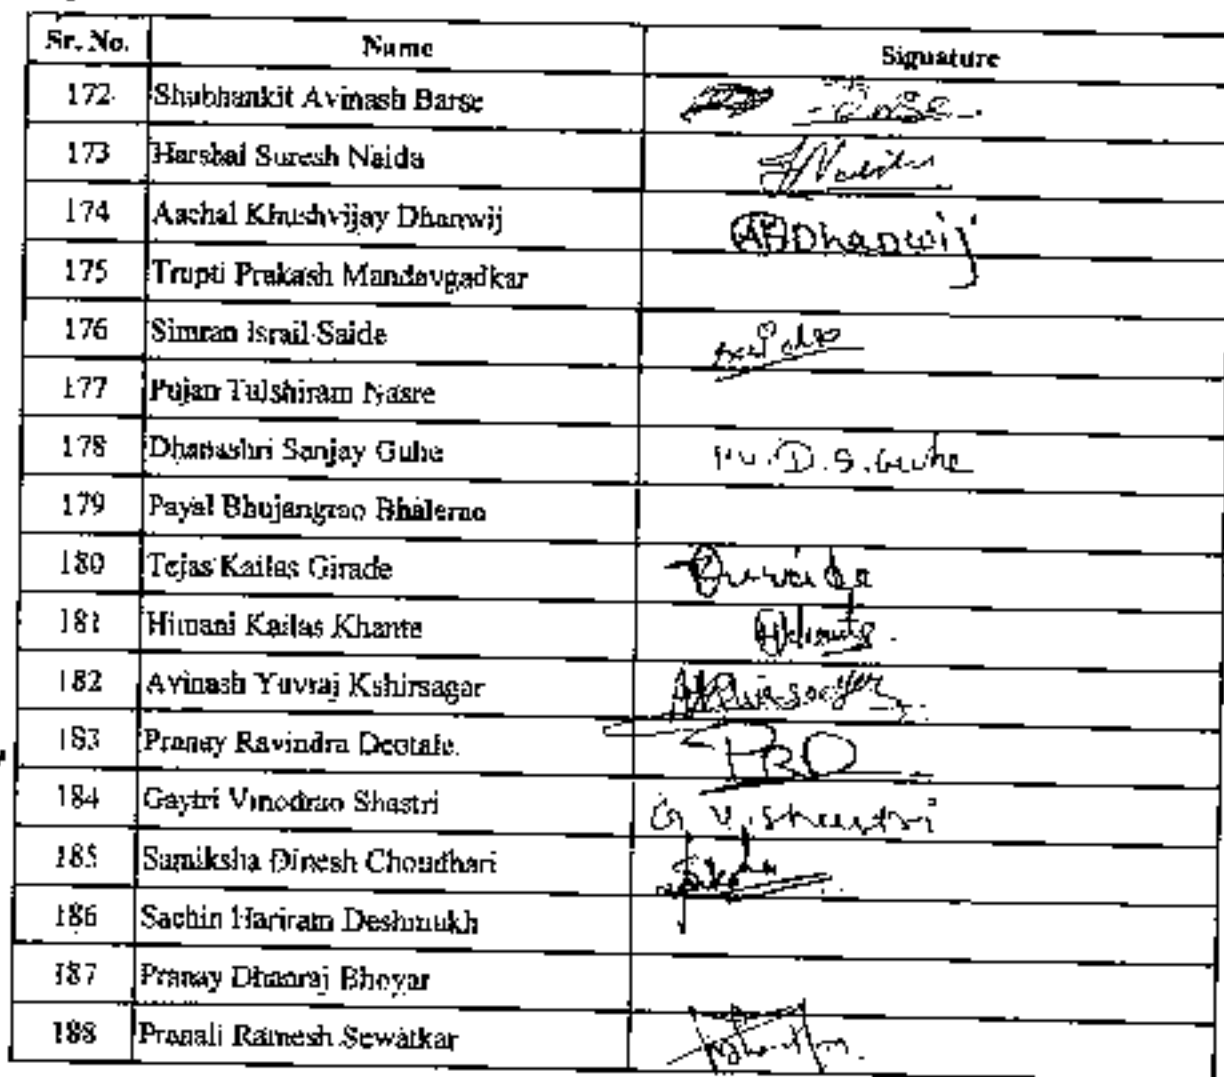 Sr. No. Name Signature
172 Shubhankit Avinash Barse
173 Harshal Suresh Naida
174 Aachal Khushvijay Dhanwij Dhanwij
175 Trupti Prakash Mandavgadkar
176 Simran Israil Saide
177 Pujan Tulshiram Nasre
178 Dhanashri Sanjay Guhe D.S.Guhe
179 Payal Bhujangrao Bhalerao
180 Tejas Kailas Girade
181 Himani Kailas Khante
182 Avinash Yuvraj Kshirsagar
183 Pranay Ravindra Deotale PRD
184 Gaytri Vinodrao Shastri G.V.Shastri
185 Samiksha Dinesh Choudhari
186 Sachin Hariram Deshmukh
187 Pranay Dhanraj Bhoyar
188 Pranali Ramesh Sewatkar